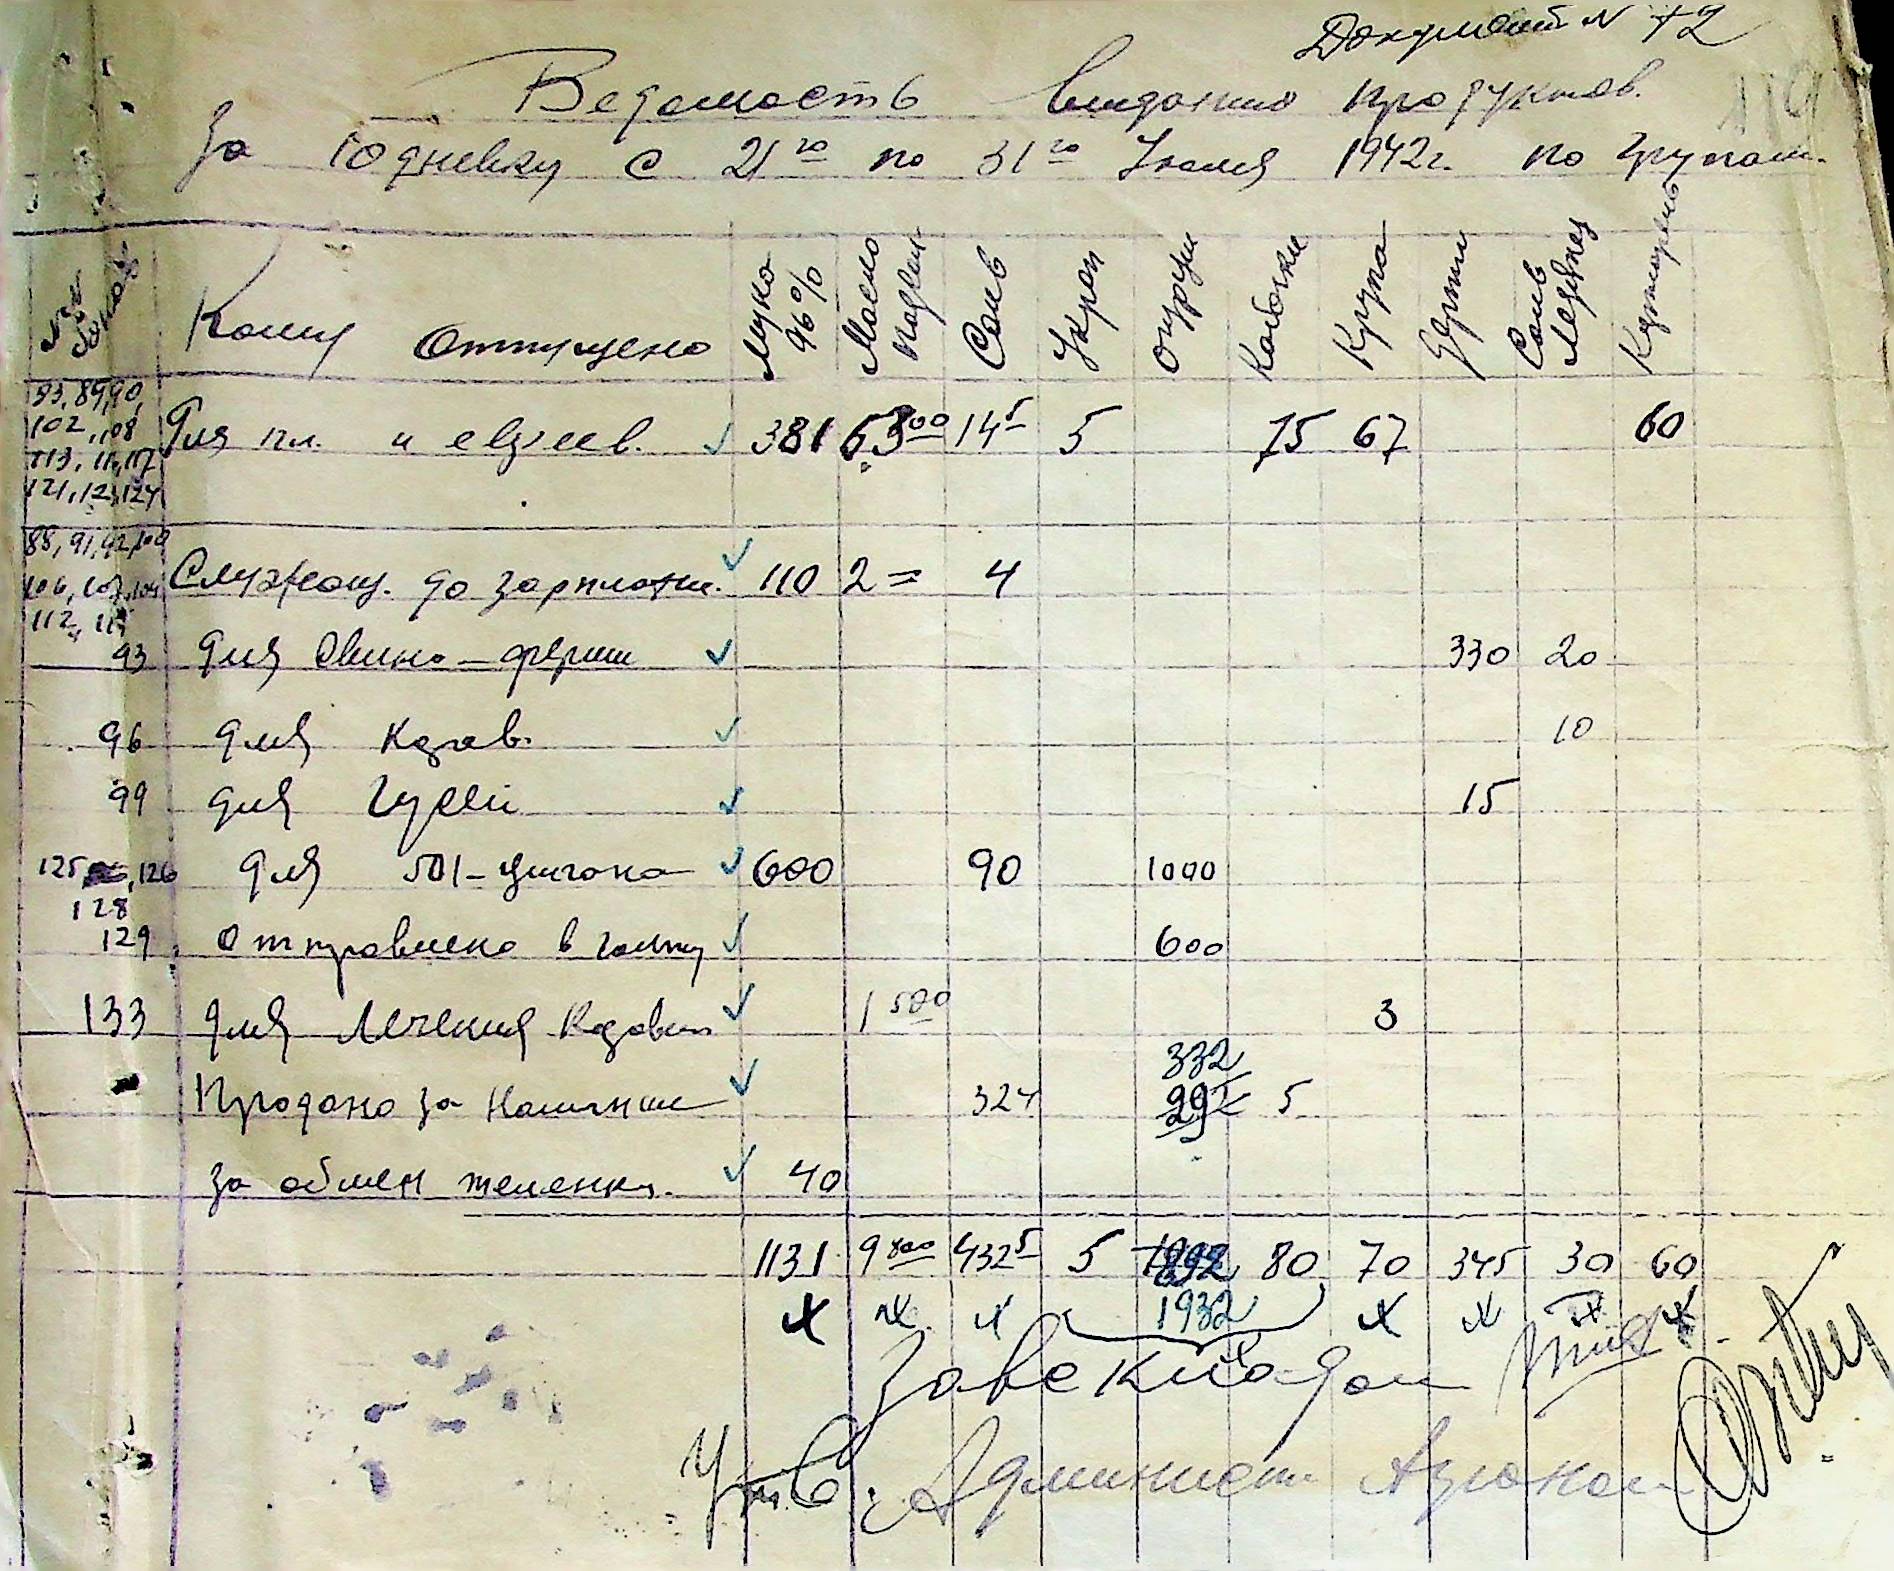 Документ N 72
119
Ведомость выдачи продуктов.
За 10 дневку с 21го по 31го Июля 1942г. по групам.
Кому Отпущено Мука 96% Масло Соль Укроп Огурци Кабачки Крупа Дерти Соль Картофель
93, 89, 90,
102, 108
Для пл. и евреев. 381 6300 14 5 5 75 67 60
113, 117
121, 123, 124
88, 91, 92, 100
Служащ. до зарплати. 110 2 = 4
106, 107, 104
112,
93 Для Свино-ферми 330 20
96 для Коров. 10
99 для Гусей 15
125, 126 Для 501-цигана 600 90 1000
128
129 Отправлено в голту 600
133 для Лечения Корови 1 500 3
332
Продано за Наличние 324 292 5
за обмен теленка. 40
1131 9 800 432 5 5 1892 80 70 345 30 60
1932
Зав складом
Утв. Администр Агроном